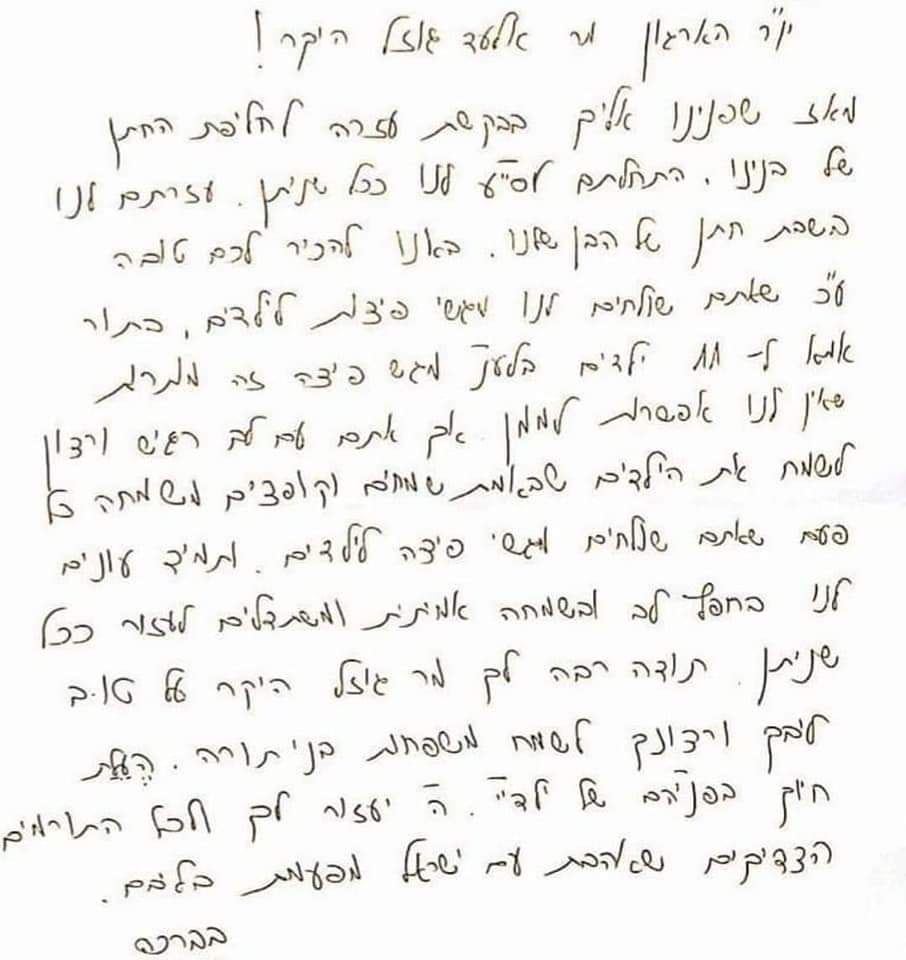 יו"ר הארגון מר אלעד גוזל היקר!
מאז שפנינו אליך בבקשת עזרה לחליפת החתן
של בנינו, התחלתם לס"ע לנו ככל שניתן. עזרתם לנו
בשבת חתן של הבן שלנו. באנו להכיר לכם טובה
ע"כ שאתם שולחים לנו מגשי פיצות לילדים, בתור
אמא ל- 11 ילדים בלע"ר מגש פיצה זה מותרות
שאין לנו אפשרות לממן אך אתם עם לב רגיש ורצון
לשמח את הילדים שבאמת שמחים וקופצים משמחה כל
פעם שאתם שולחים מגשי פיצה לילדים. תמיד עונים
לנו בחפץ לב ובשמחה אמיתית ומשתדלים לעזור ככל
שניתן. תודה רבה לך מר גוזל היקר על טוב
לבך ורצונך לשמח משפחות בני תורה. העלת
חיוך בפניהם של ילדיי. ה' יעזור לך ולכל התורמים
הצדיקים שאהבת עם ישראל מפעמת בליבם.
בברכה